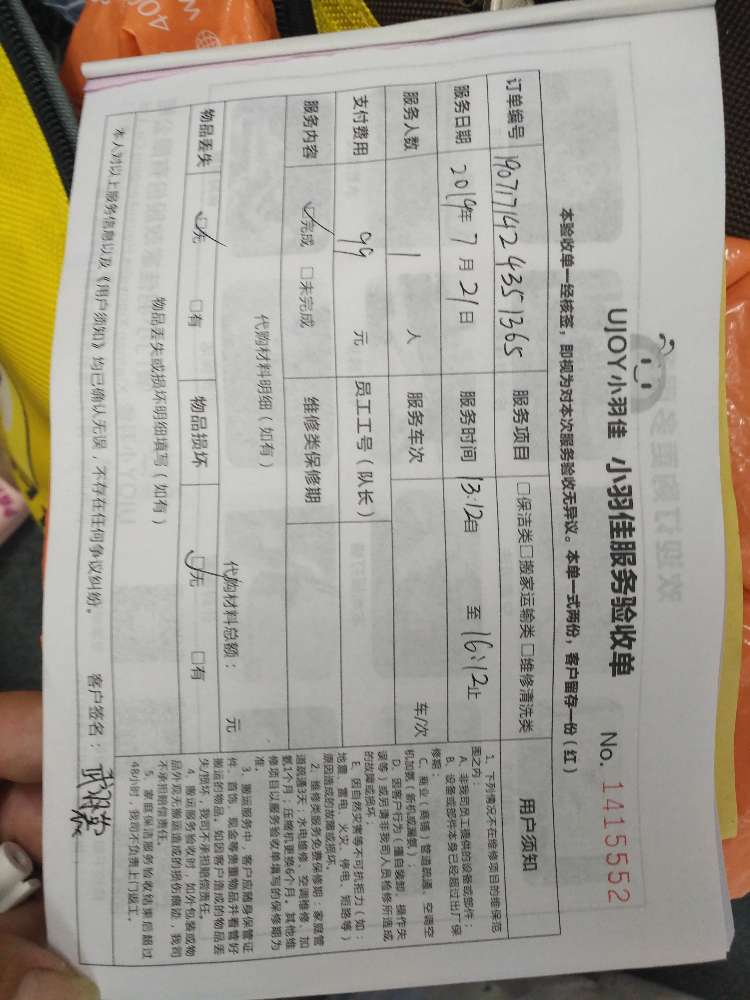 UJOY小羽佳 小羽佳服务验收单 No. 1415552
本验收单一经核签，即视为对本次服务验收无异议。本单一式两份，客户留存一份（红）
订单编号 190717424351365 服务项目 □保洁类□搬家运输类 □维修清洗类
服务日期 2019年 7月 21日 服务时间 13:12自 至 16:12止
服务人数 1 人 服务车次 车/次
支付费用 99 元 员工工号（队长）
服务内容 ☑完成 □未完成 维修类保修期
代购材料明细（如有） 代购材料总额： 元
物品丢失 ☑无 □有 物品损坏 ☑无 □有
物品丢失或损坏明细填写（如有）
本人对以上服务信息以及《用户须知》均已确认无误，不存在任何争议纠纷。 客户签名：
用户须知
1、下列情况不在维修项目的维保范
围之内：
A、非我司员工提供的设备或部件；
B、设备或部件本身已经超过出厂保
修期；
C、商业（商铺）管道疏通、空调空
机加氨（新机或漏氨）；
D、因客户行为（擅自装卸、操作失
误等）或另请非我司人员检修所造成
的故障或损坏；
E、因自然灾害等不可抗拒力（如：
地震、雷电、火灾、停电、短路等）
原因造成的故障或损坏。
2、维修类服务免费保修期：家庭管
道疏通3天；水电维修、空调维修、加
氨1个月；压缩机更换6个月。其他维
修项目以服务验收单填写的保修期为
准。
3、搬运服务中，客户应随身保管证
件、首饰、现金等贵重物品并看管好
搬运的物品，如因客户造成的物品丢
失/损坏，我司不承担赔偿责任。
4、搬运服务验收时，如外包装或物
品外观无搬运造成的损伤痕迹，我司
不承担赔偿责任。
5、家庭保洁服务验收结束后超过
48小时，我司不负责上门返工。